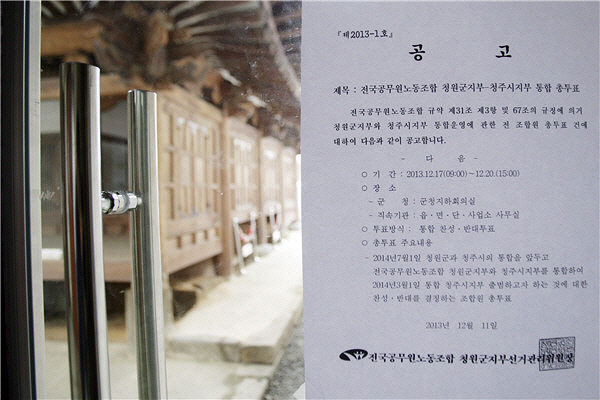 『제2013-1호』
공 고
제목 : 전국공무원노동조합 청원군지부-청주시지부 통합 총투표
전국공무원노동조합 규약 제31조 제3항 및 67조의 규정에 의거
청원군지부와 청주시지부 통합운영에 관한 전 조합원 총투표 건에
대하여 다음과 같이 공고합니다.
- 다 음 -
○ 기 간 : 2013.12.17(09:00)~12.20.(15:00)
○ 장 소
- 군 청 : 군청지하회의실
- 직속기관 : 읍·면·단·사업소 사무실
○ 투표방식 : 통합 찬성·반대투표
○ 총투표 주요내용
- 2014년7월1일 청원군과 청주시의 통합을 앞두고
전국공무원노동조합 청원군지부와 청주시지부를 통합하여
2014년3월1일 통합 청주시지부 출범하고자 하는 것에 대한
찬성·반대를 결정하는 조합원 총투표
2013년 12월 11일
전국공무원노동조합 청원군지부선거관리위원장